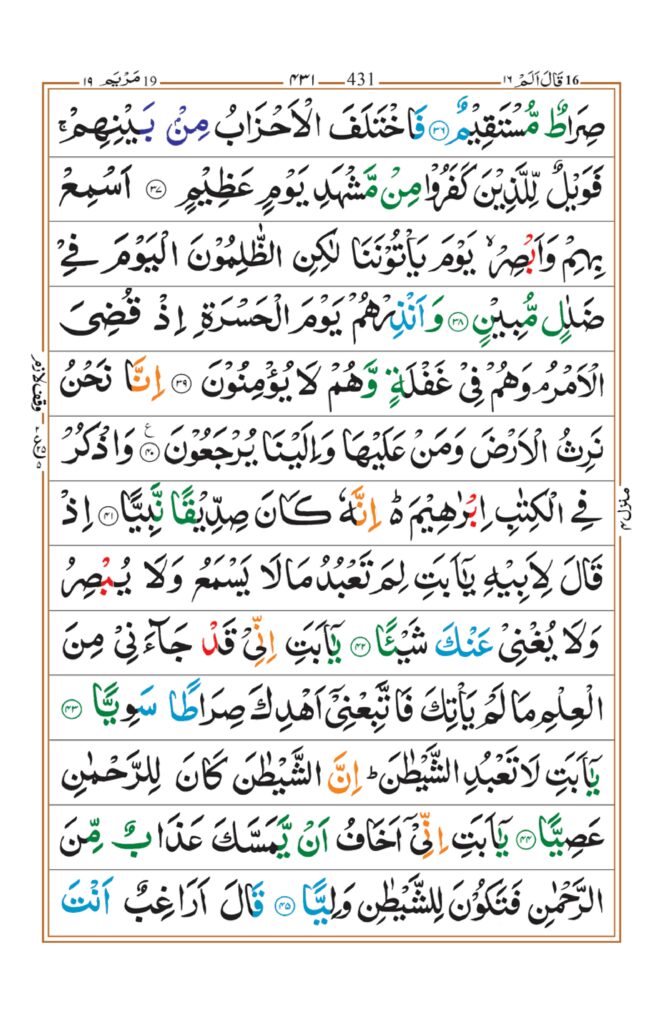 16 قَالَ اَلَمْ ١٦ 431 ٤٣١ 19 مَرْيَم ١٩
صِرَاطٌ مُّسْتَقِيْمٌ ۝٣٦ فَاخْتَلَفَ الْاَحْزَابُ مِنْۢ بَيْنِهِمْ ۚ
فَوَيْلٌ لِّلَّذِيْنَ كَفَرُوْا مِنْ مَّشْهَدِ يَوْمٍ عَظِيْمٍ ۝٣٧ اَسْمِعْ
بِهِمْ وَاَبْصِرْ ۙ يَوْمَ يَاْتُوْنَنَا لٰكِنِ الظّٰلِمُوْنَ الْيَوْمَ فِيْ
ضَلٰلٍ مُّبِيْنٍ ۝٣٨ وَاَنْذِرْهُمْ يَوْمَ الْحَسْرَةِ اِذْ قُضِيَ
الْاَمْرُ ۘ وَهُمْ فِيْ غَفْلَةٍ وَّهُمْ لَا يُؤْمِنُوْنَ ۝٣٩ اِنَّا نَحْنُ
نَرِثُ الْاَرْضَ وَمَنْ عَلَيْهَا وَاِلَيْنَا يُرْجَعُوْنَ ۝٤٠ ع وَاذْكُرْ
فِي الْكِتٰبِ اِبْرٰهِيْمَ ۬ؕ اِنَّهٗ كَانَ صِدِّيْقًا نَّبِيًّا ۝٤١ اِذْ
قَالَ لِاَبِيْهِ يٰۤاَبَتِ لِمَ تَعْبُدُ مَا لَا يَسْمَعُ وَلَا يُبْصِرُ
وَلَا يُغْنِيْ عَنْكَ شَيْـًٔا ۝٤٢ يٰۤاَبَتِ اِنِّيْ قَدْ جَآءَنِيْ مِنَ
الْعِلْمِ مَا لَمْ يَاْتِكَ فَاتَّبِعْنِيْۤ اَهْدِكَ صِرَاطًا سَوِيًّا ۝٤٣
يٰۤاَبَتِ لَا تَعْبُدِ الشَّيْطٰنَ ؕ اِنَّ الشَّيْطٰنَ كَانَ لِلرَّحْمٰنِ
عَصِيًّا ۝٤٤ يٰۤاَبَتِ اِنِّيْۤ اَخَافُ اَنْ يَّمَسَّكَ عَذَابٌ مِّنَ
الرَّحْمٰنِ فَتَكُوْنَ لِلشَّيْطٰنِ وَلِيًّا ۝٤٥ قَالَ اَرَاغِبٌ اَنْتَ
وقف لازم
منزل ٤